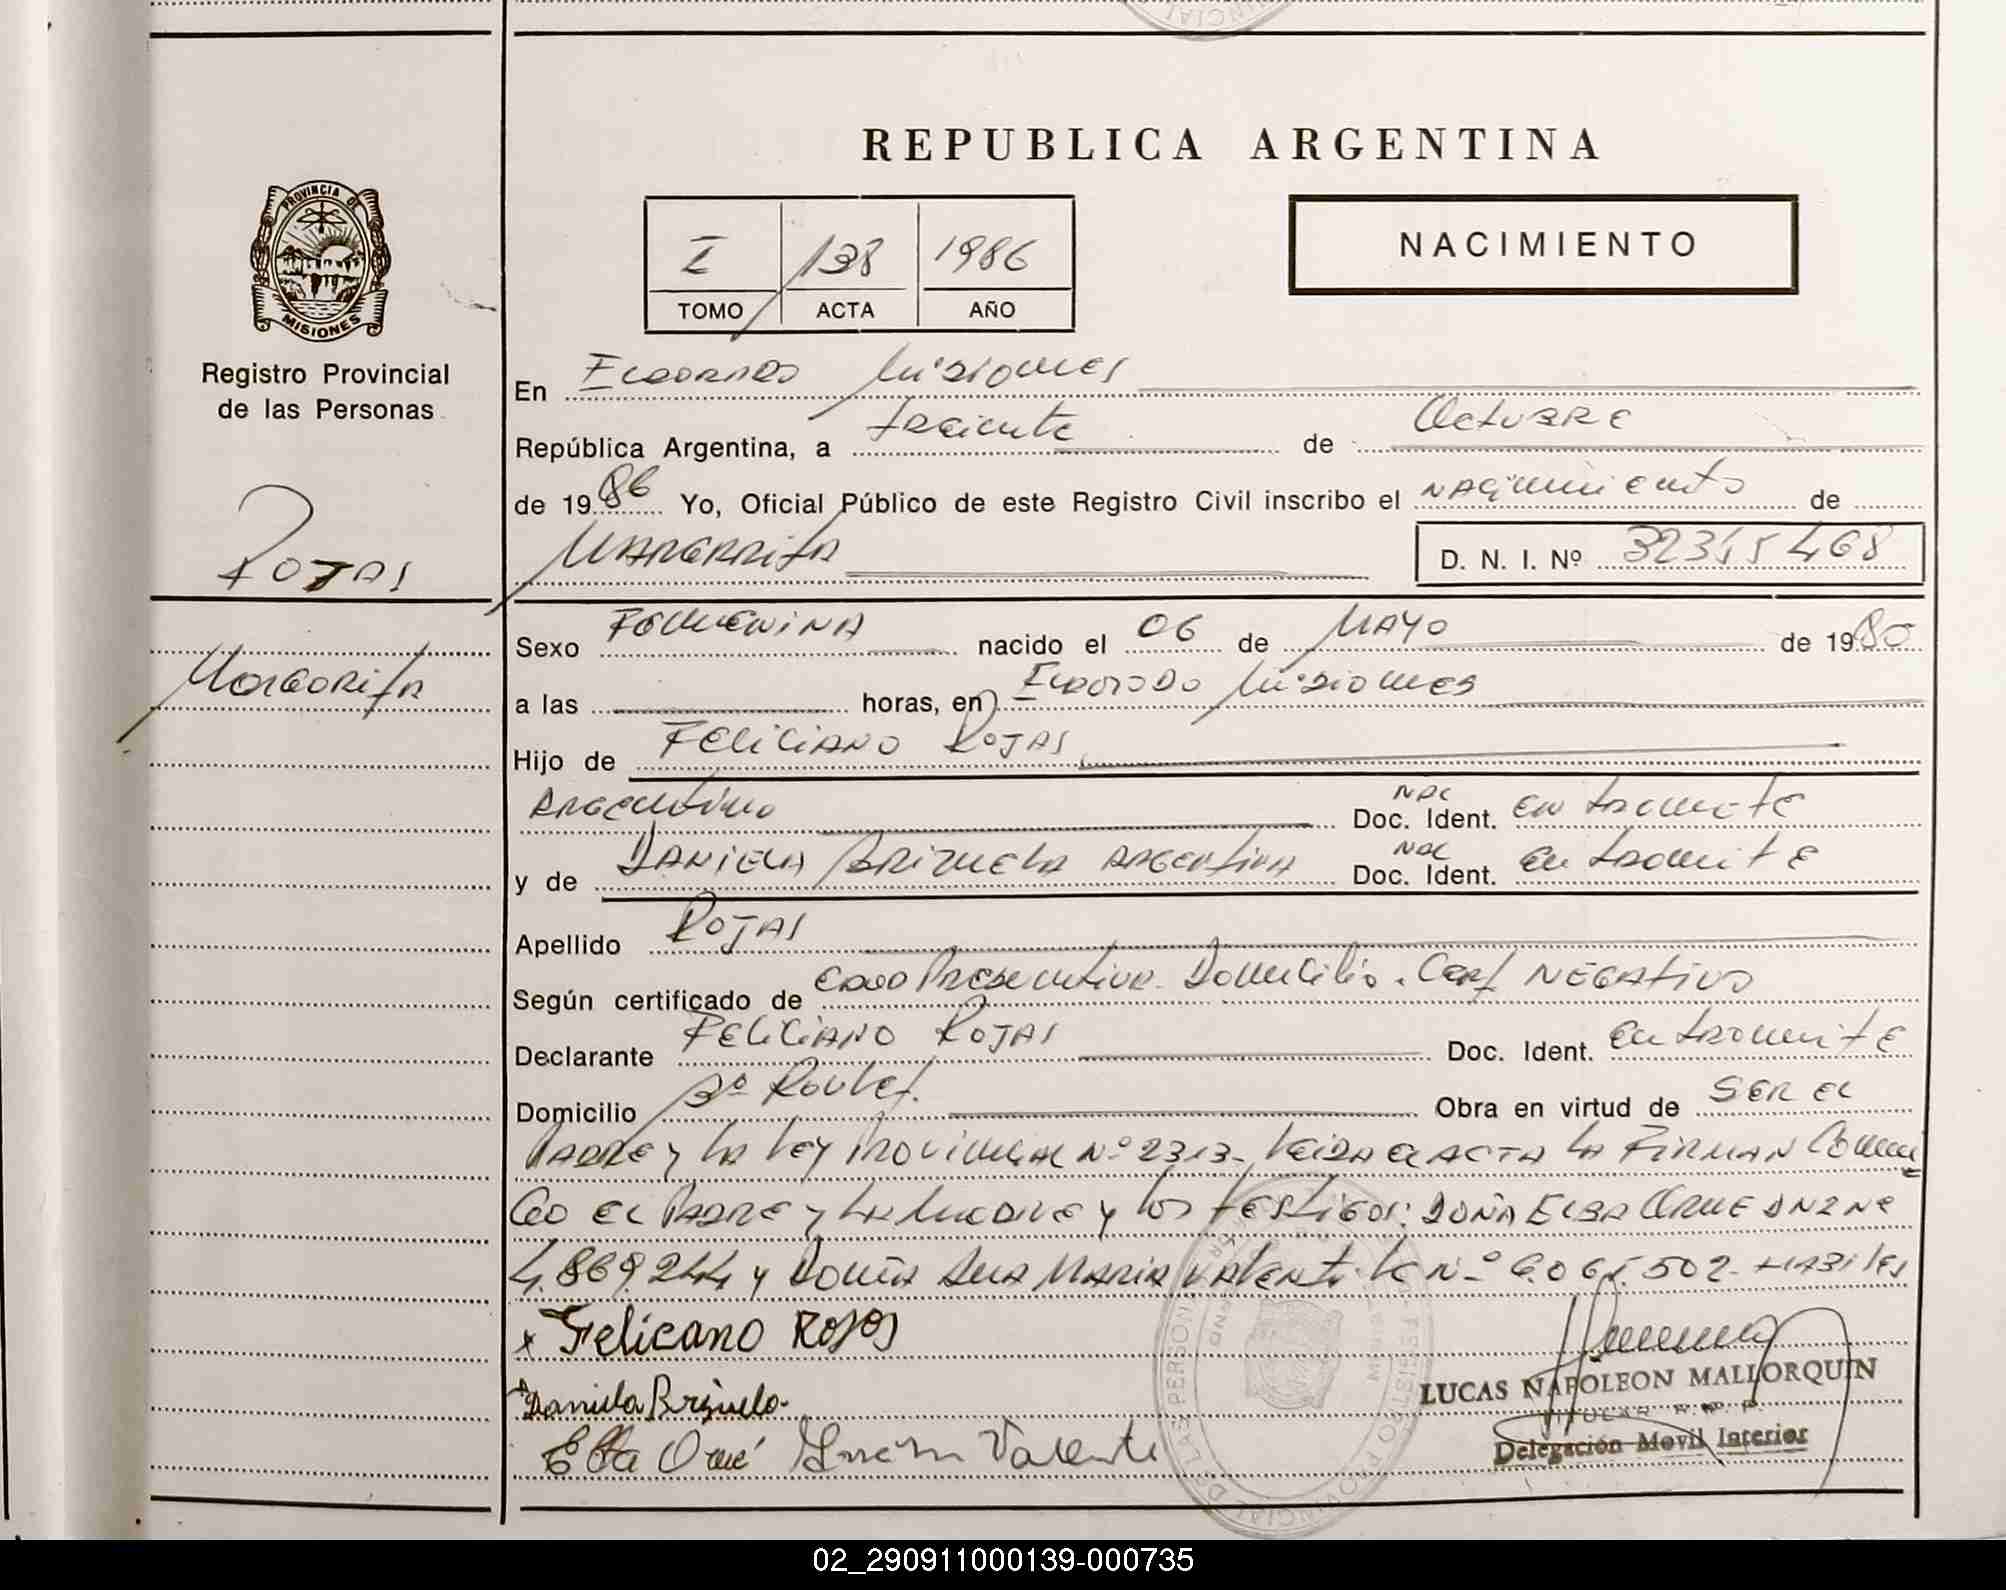 REPUBLICA ARGENTINA
PROVINCIA DE
MISIONES
Registro Provincial
de las Personas
I 138 1986
TOMO ACTA AÑO
NACIMIENTO
ROJAS
Margarita
En Eldorado Misiones
República Argentina, a treinta de Octubre
de 1986 Yo, Oficial Público de este Registro Civil inscribo el nacimiento de
Margarita D. N. I. Nº 32315468
Sexo Femenina nacido el 06 de Mayo de 1980
a las horas, en Eldorado Misiones
Hijo de Feliciano Rojas
Argentino Nac Doc. Ident. en tramite
y de Daniela Brizuela Argentina Nac Doc. Ident. en tramite
Apellido Rojas
Según certificado de Domicilio. Cert Negativo
Declarante Feliciano Rojas Doc. Ident. en tramite
Domicilio Obra en virtud de ser el
Padre y la ley Provincial Nº 2313- leida el acta la firman conmi
go el Padre y la Madre y los testigos: Doña Elba Orue
4.869.244 y Doña Ana Maria Valente Lc Nº 6.061.502- habiles
x Felicano Rojas
Daniela Brizuela
Elba Orué Valente
LUCAS NAPOLEON MALLORQUIN
TITULAR R. P. P.
Delegación Movil Interior
02_290911000139-000735